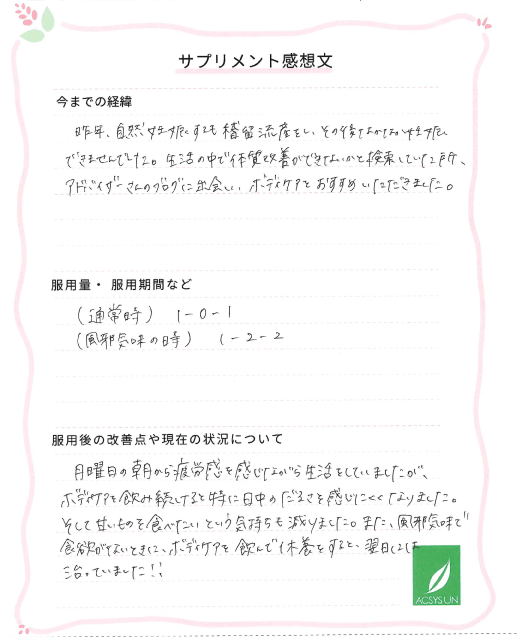 サプリメント感想文
今までの経緯
昨年、自然妊娠するも稽留流産をし、その後なかなか妊娠
できませんでした。生活の中で体質改善ができないかと検索していた所、
アドバイザーさんのブログに出会い、ボディケアをおすすめいただきました。
服用量・服用期間など
(通常時) 1-0-1
(風邪気味の時) 1-2-2
服用後の改善点や現在の状況について
月曜日の朝から疲労感を感じながら生活をしていましたが、
ボディケアを飲み続けると特に日中のだるさを感じにくくなりました。
そして甘いものを食べたいという気持ちも減りました。また、風邪気味で
食欲がないときに、ボディケアを飲んで休養をすると、翌日には
治っていました!!
ACSYSUN